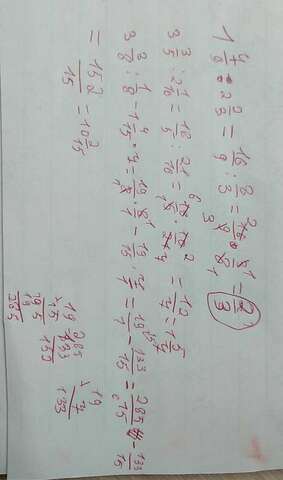 1 7/9 : 2 2/3 = 16/9 : 8/3 = 16/9 · 3/8 = 2/3
3 3/5 : 2 1/10 = 18/5 : 21/10 = 18/5 · 10/21 = 12/7 = 1 5/7
2 3/8 : 1/8 - 1 4/15 · 7 = 19/8 · 8/1 - 19/15 · 7/1 = 19/1 - 133/15 = 285/15 - 133/15
= 152/15 = 10 2/15
19
× 15
95
19
285
285
133
152
19
× 7
133